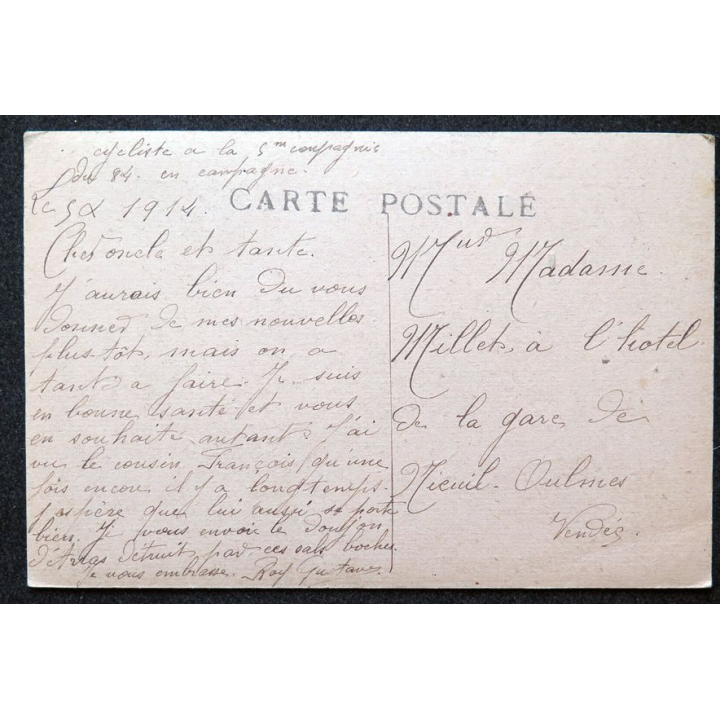 cycliste a la 5me compagnie
du 84. en campagne.
Le 5 1914.
CARTE POSTALE
Cher oncle et tante.
J'aurais bien du vous
donner de mes nouvelles
plus tôt, mais on a
tant a faire. Je suis
en bonne santé et vous
en souhaite autant. J'ai
vu le cousin François qu'une
fois encore il y a longtemps
j'aspère que lui aussi se porte
bien. Je vous envoie le donjon
d'Arras détruit par ces sals boches.
Je vous embrasse. Roy Gustave.
Madame
Millet, à l'hotel
de la gare de
Nieuil-Oulmes
Vendée.